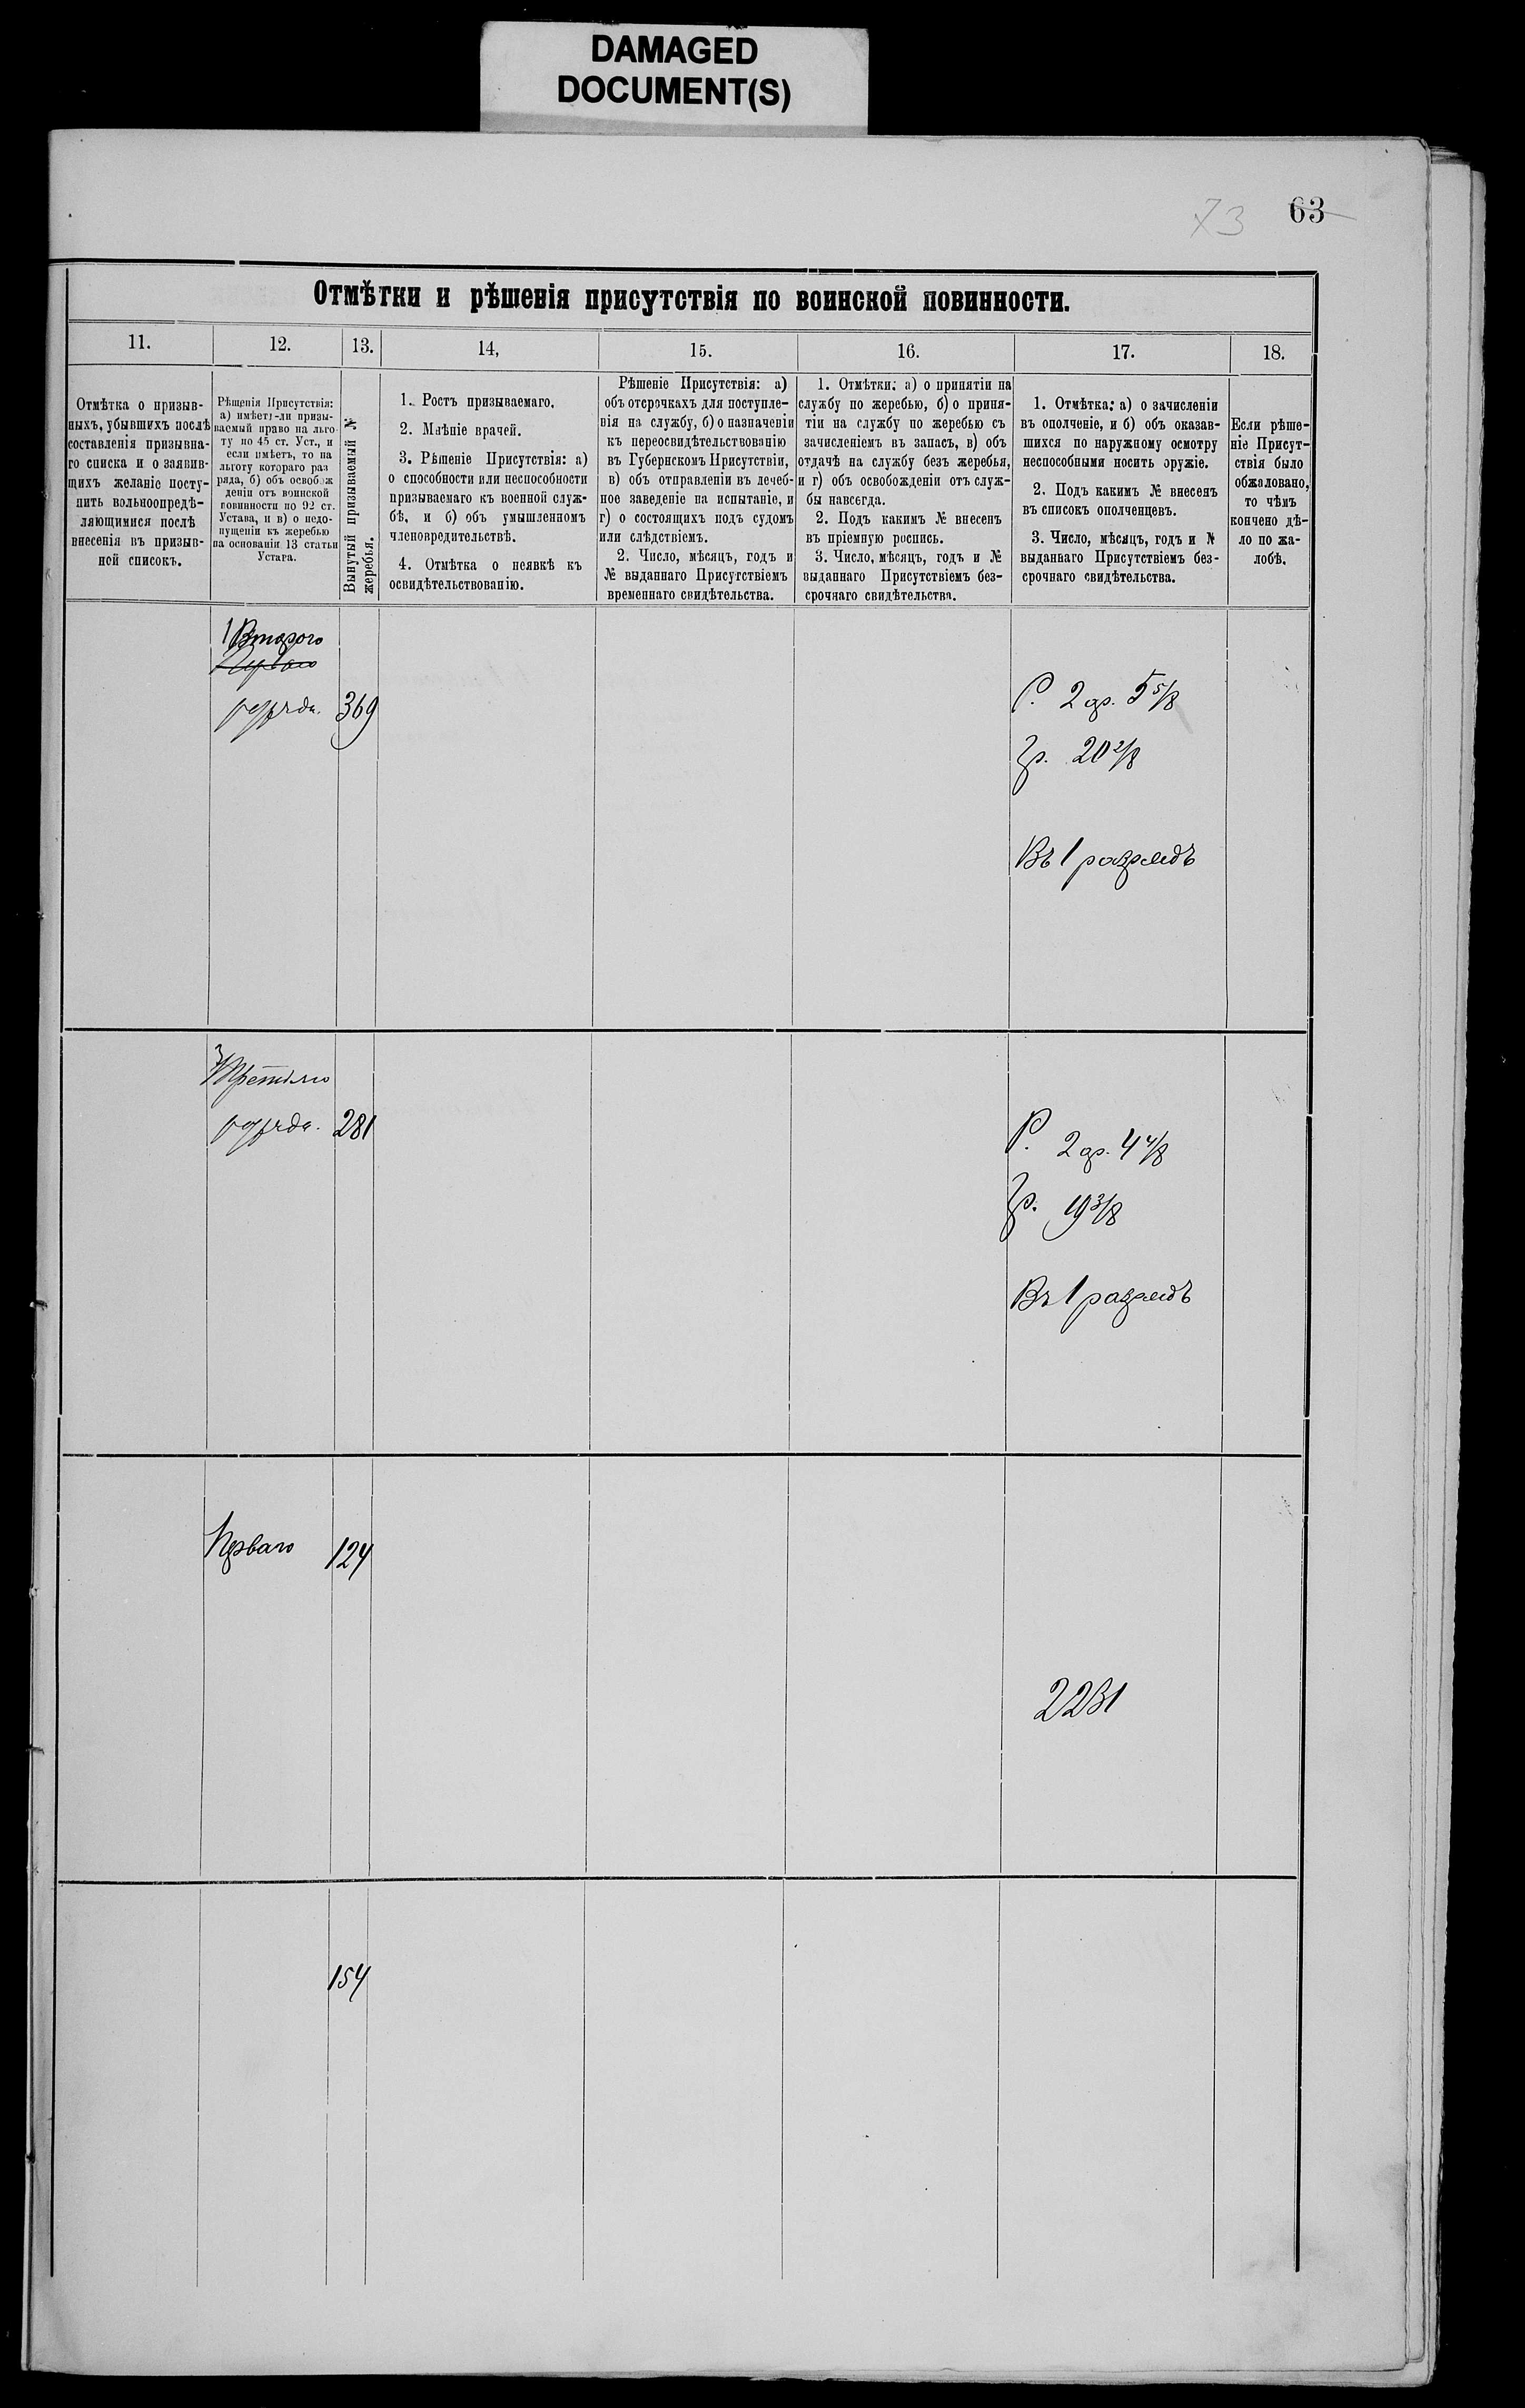 DAMAGED
DOCUMENT(S)
73 63
Отмѣтки и рѣшенія присутствія по воинской повинности.
11. 12. 13. 14, 15. 16. 17. 18.
Отмѣтка о призыв-
ныхъ, убывшихъ послѣ
составленія призывна-
го списка и о заявив-
щихъ желаніе посту-
пить вольноопредѣ-
ляющимися послѣ
внесенія въ призыв-
ной списокъ.
Рѣшенія Присутствія:
а) имѣетъ-ли призы-
ваемый право на льго-
ту по 45 ст. Уст., и
если имѣетъ, то на
льготу котораго раз
ряда, б) объ освобож
деніи отъ воинской
повинности по 92 ст.
Устава, и в) о недо-
пущеніи къ жеребью
на основаніи 13 статьи
Устава.
Вынутый призываемый №
жеребья.
1. Ростъ призываемаго.
2. Мнѣніе врачей.
3. Рѣшеніе Присутствія: а)
о способности или неспособности
призываемаго къ военной служ-
бѣ, и б) объ умышленномъ
членовредительствѣ.
4. Отмѣтка о неявкѣ къ
освидѣтельствованію.
Рѣшеніе Присутствія: а)
объ отсрочкахъ для поступле-
нія на службу, б) о назначеніи
къ переосвидѣтельствованію
въ Губернскомъ Присутствіи,
в) объ отправленіи въ лечеб-
ное заведеніе на испытаніе, и
г) о состоящихъ подъ судомъ
или слѣдствіемъ.
2. Число, мѣсяцъ, годъ и
№ выданнаго Присутствіемъ
временнаго свидѣтельства.
1. Отмѣтки: а) о принятіи на
службу по жеребью, б) о приня-
тіи на службу по жеребью съ
зачисленіемъ въ запасъ, в) объ
отдачѣ на службу безъ жеребья,
и г) объ освобожденіи отъ служ-
бы навсегда.
2. Подъ какимъ № внесенъ
въ пріемную роспись.
3. Число, мѣсяцъ, годъ и №
выданнаго Присутствіемъ без-
срочнаго свидѣтельства.
1. Отмѣтка: а) о зачисленіи
въ ополченіе, и б) объ оказав-
шихся по наружному осмотру
неспособными носить оружіе.
2. Подъ какимъ № внесенъ
въ списокъ ополченцевъ.
3. Число, мѣсяцъ, годъ и №
выданнаго Присутствіемъ без-
срочнаго свидѣтельства.
Если рѣше-
ніе Присут-
ствія было
обжаловано,
то чѣмъ
кончено дѣ-
ло по жа-
лобѣ.
Второго
Перваго
разряда. 369
Р. 2 ар. 5 5/8
Гр. 20 2/8
Въ 1 разрядъ
Третьяго
разряда. 281
Р. 2 ар. 4 4/8
Гр. 19 3/8
Въ 1 разрядъ
Перваго 124
2231
154